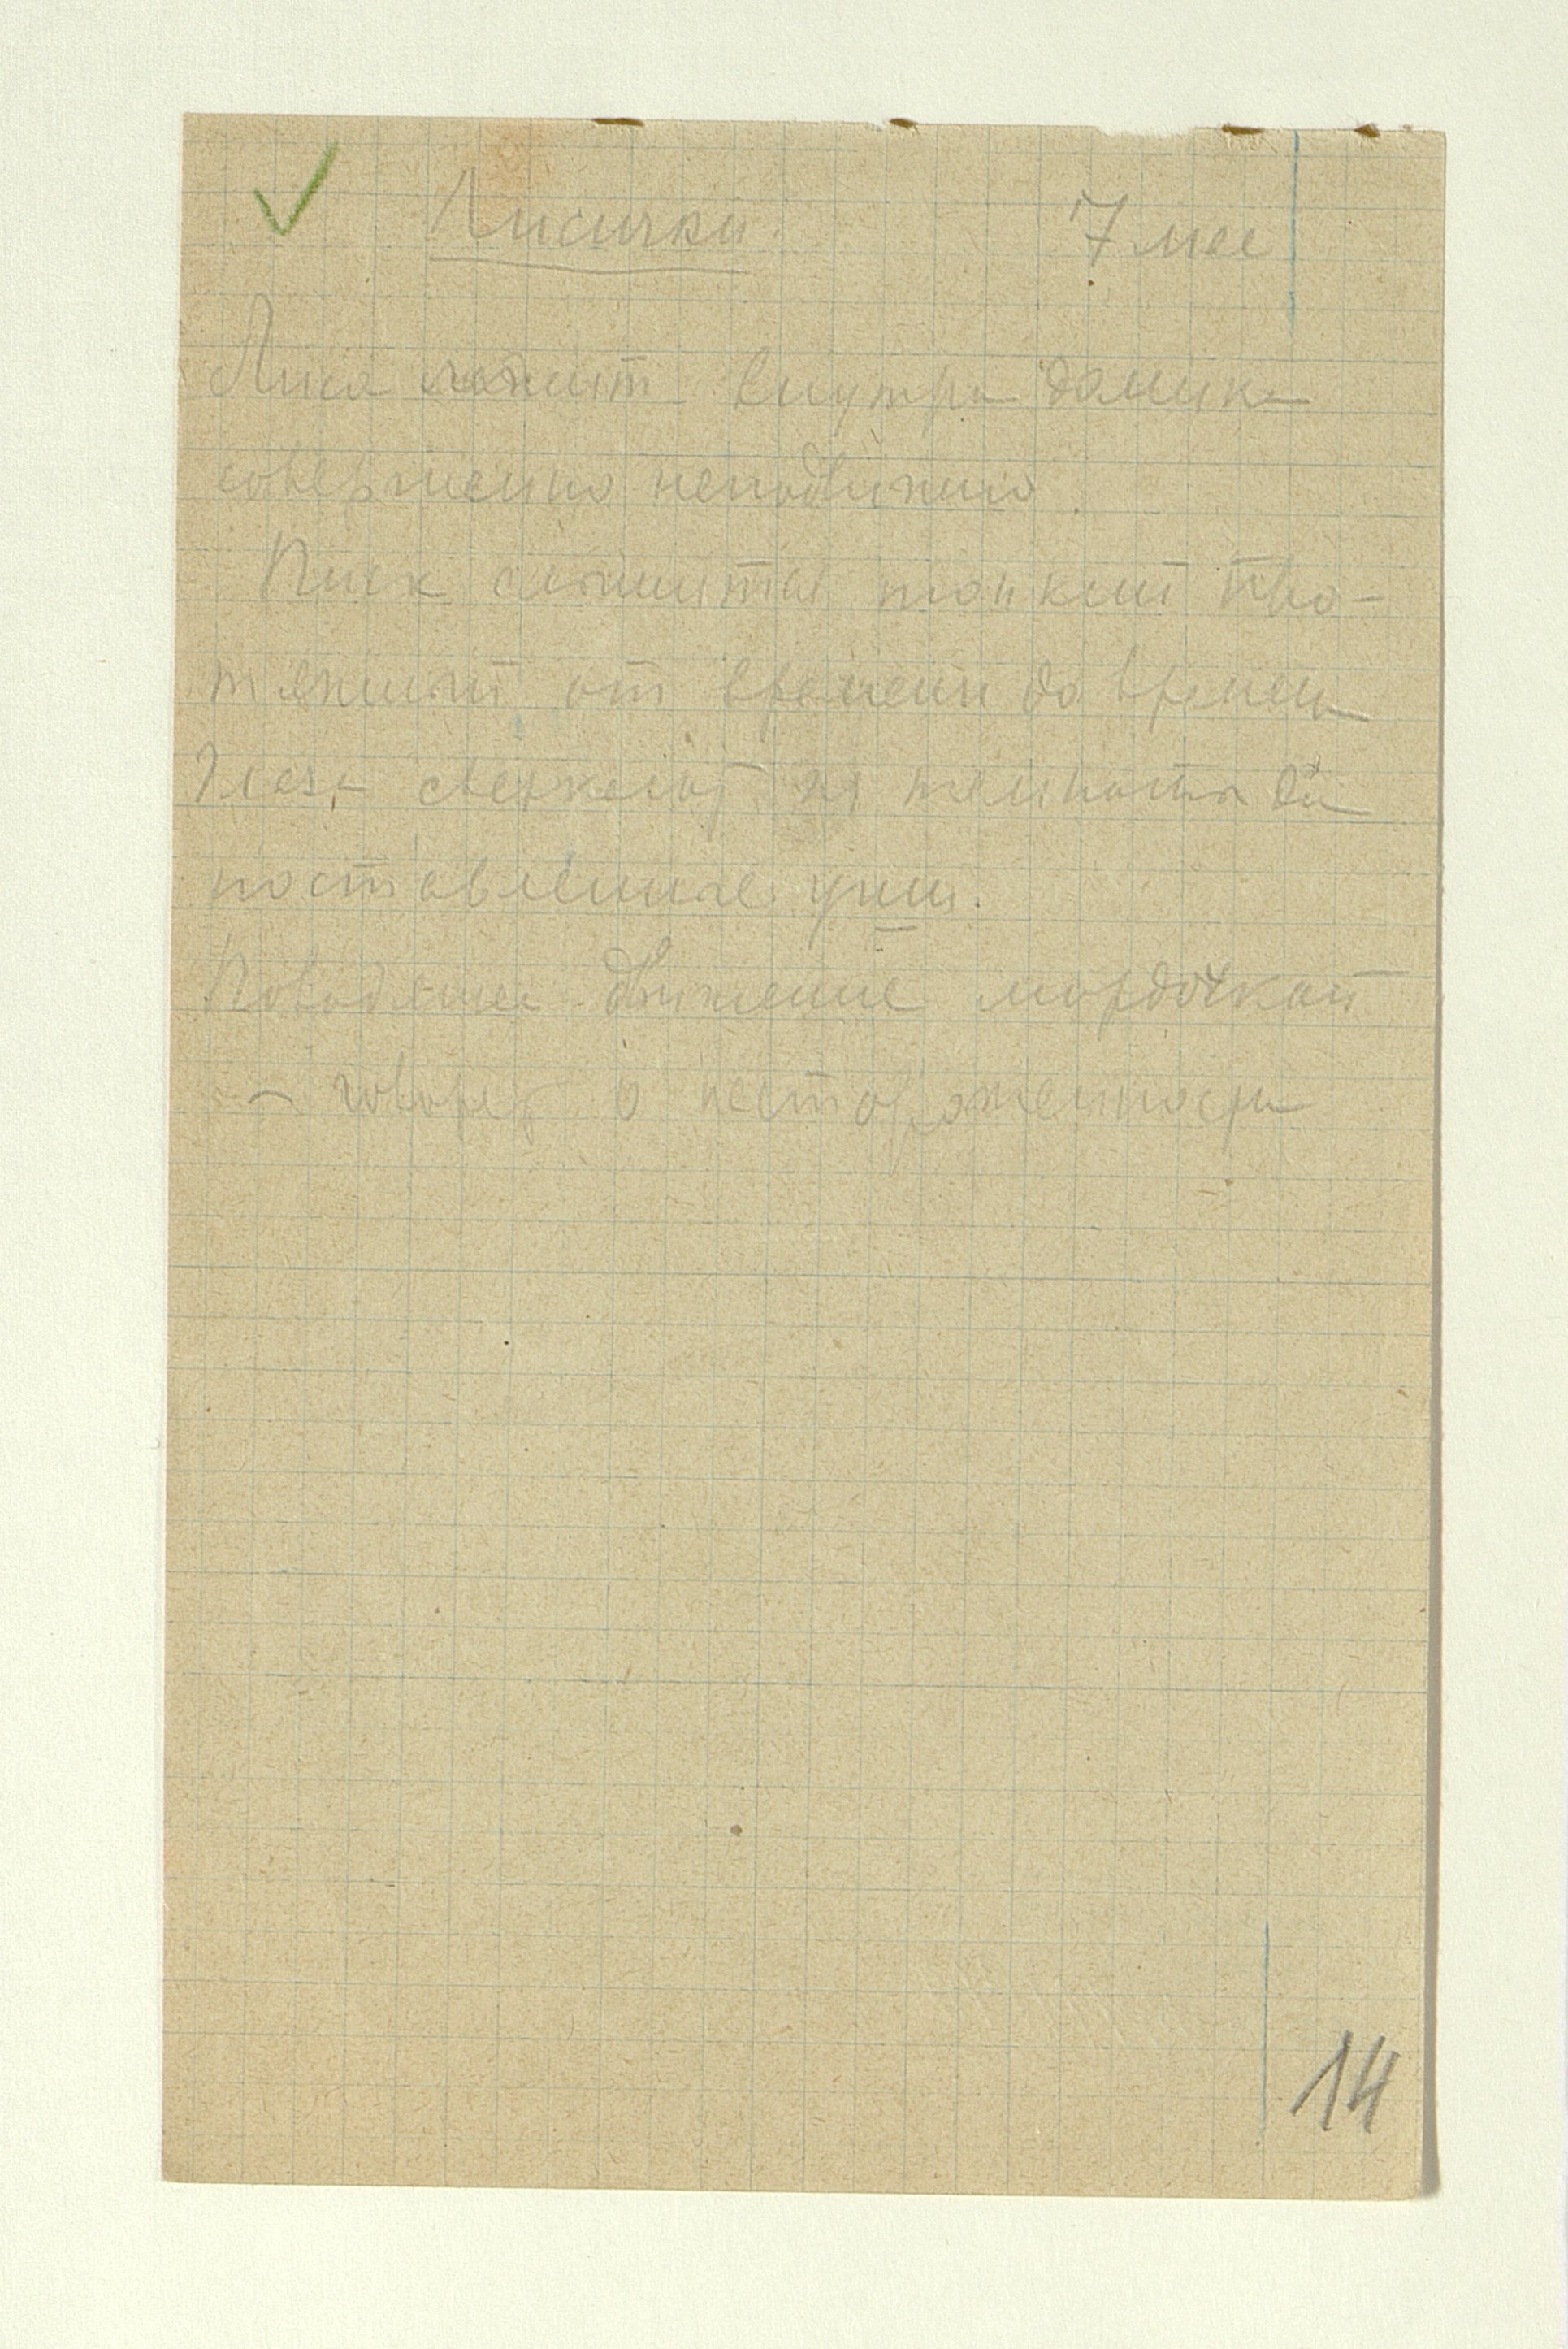 Лисички. 7 мая
Лиса лежит внутри домика
совершенно неподвижно
Писк слышится тонкий про-
тяжный от времени до времени
Глаза сверкают из темноты да
поставленные уши.
движение мордочкой
— говорят о настороженности
14